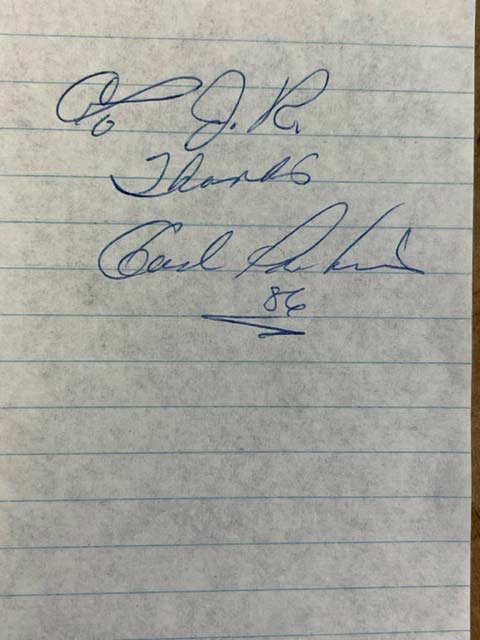 To J.R.
Thanks
Carl Perkins
86